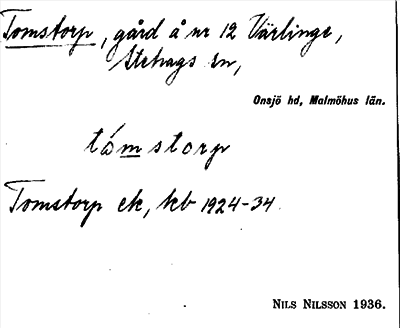 Tomstorp, gård å nr 12 Värlinge,
Stehags sn,
Onsjö hd, Malmöhus län.
tómstorp
Tomstorp ek, kb 1924-34.
NILS NILSSON 1936.